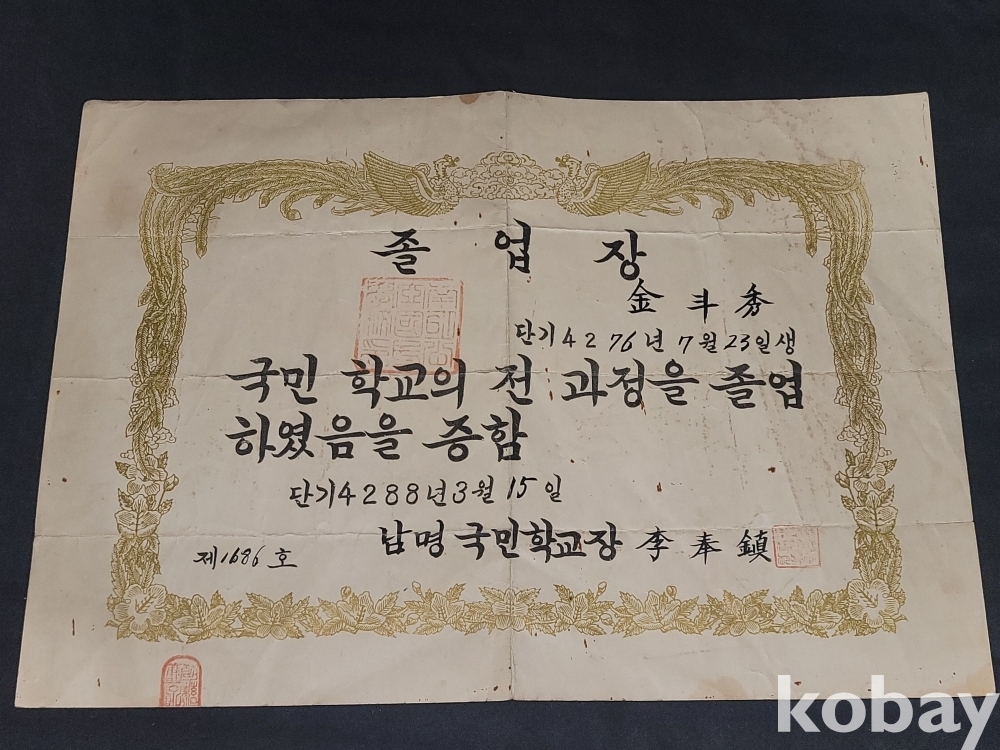 졸 업 장
金 斗 秀
단기4276년 7월 23일생
국민 학교의 전 과정을 졸업
하였음을 증함
단기4288년3월 15일
남명 국민학교장 李奉鎮
제1686호
kobay